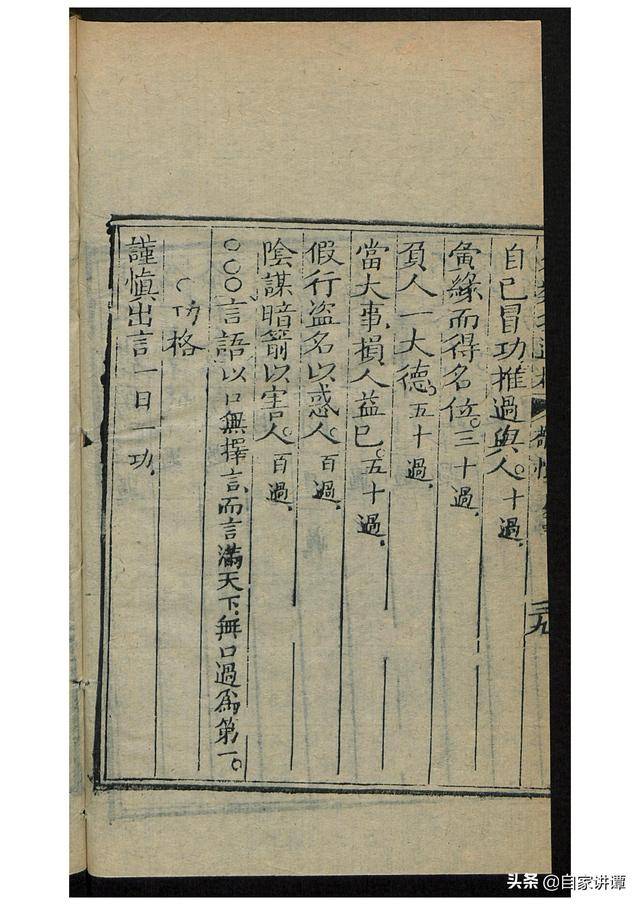 自己冒功推過與人。十過.
夤緣而得名位。三十過.
負人一大德。五十過.
當大事損人益己。五十過.
假行盜名以惑人。百過.
陰謀暗箭以害人。百過.
○○○言語以口無擇言而言滿天下無口過為第一。
○功格
謹慎出言一日一功.
三九
头条 @自家讲谭